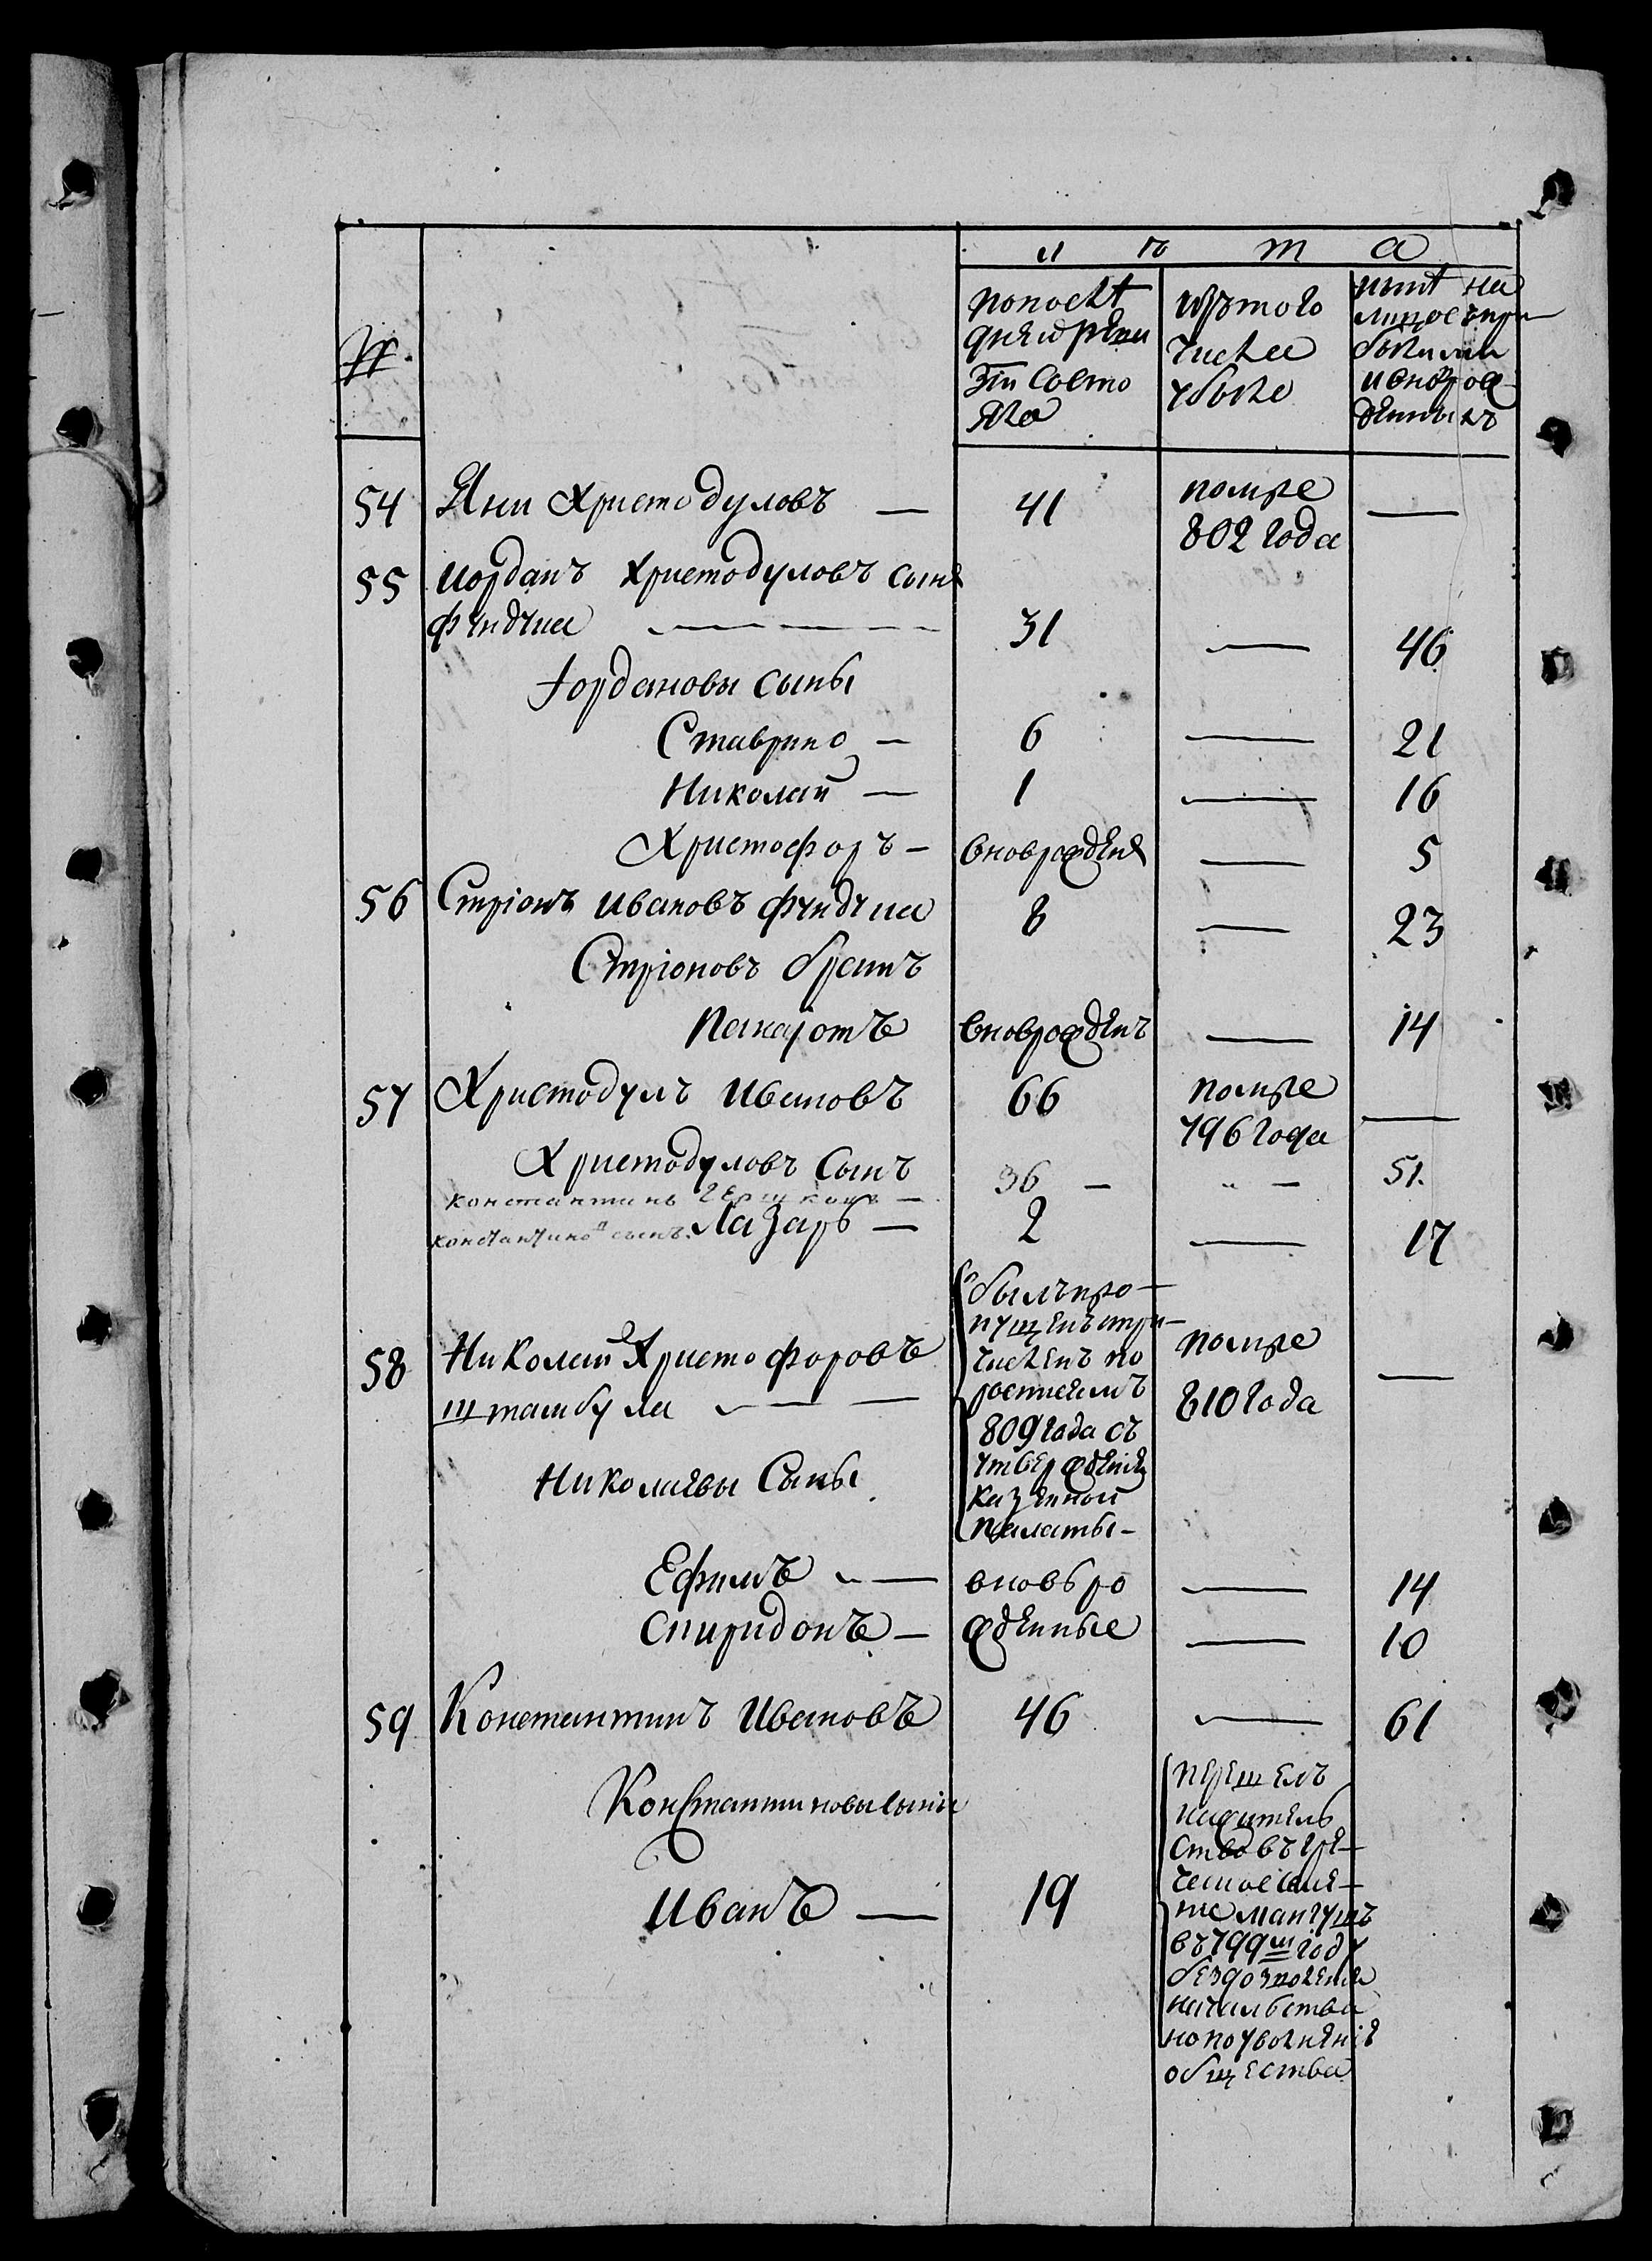 л ѣ т а
№.
попослѣ
дней реви
зіи состо
яло
изтого
числа
убыло
нынѣ на
лицо спри
былыми
ивноврож
денныхъ
54 Яни Христодуловъ — 41 помре —
802 года
55 Иорданъ Христодуловъ сынъ
Фундчиа — 31 — 46
Іордановы сыны
Ставрино — 6 — 21
Николай — 1 — 16
Христофоръ — вноврожденъ — 5
56 Стріонъ Ивановъ Фундчиа 8 — 23
Стріоновъ братъ
Панаіотъ вноврожденъ — 14
57 Христодулъ Ивановъ 66 помре —
796 года
Христодуловъ сынъ
Константинъ — 36 — „ — 51.
Константинов сынъ. Лазарь — 2 — 17
былъ про—
пущенъ при—
численъ по
росписямъ
809 года съ
утвержденія
казенной
палаты—
58 Николай Христофоровъ помре —
штамбула — 810 года
Николаевы сыны
Ефимъ — вновь ро — 14
Спиридонъ — жденные — 10
59 Константинъ Ивановъ 46 — 61
Константиновы сыны
Иванъ — 19
перешелъ
нажитель
ство въ гре—
ческое селе—
ние мангушъ
въ 799м году
бездозволения
начальства
но по уволнению
общества